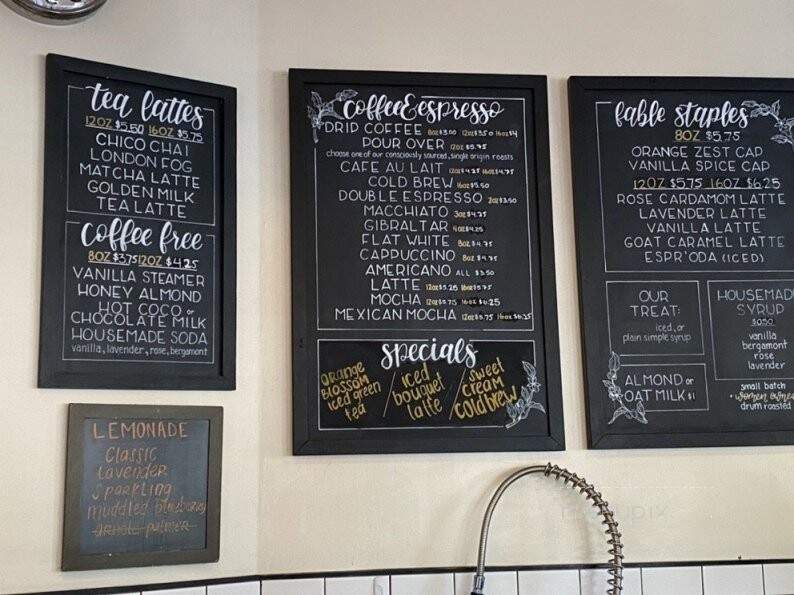 tea lattes
12OZ $5.50 16OZ $5.75
CHICO CHAI
LONDON FOG
MATCHA LATTE
GOLDEN MILK
TEA LATTE
coffee free
8OZ $3.75 12OZ $4.25
VANILLA STEAMER
HONEY ALMOND
HOT COCO or
CHOCOLATE MILK
HOUSEMADE SODA
vanilla, lavender, rose, bergamont
LEMONADE
Classic
lavender
sparkling
muddled blueberry
arnold palmer
coffee & espresso
DRIP COFFEE 8OZ $3.00 12OZ $3.50 16OZ $4
POUR OVER 12OZ $5.75
choose one of our consciously sourced, single origin roasts
CAFE AU LAIT 12OZ $4.25 16OZ $4.75
COLD BREW 16OZ $5.50
DOUBLE ESPRESSO 2OZ $3.50
MACCHIATO 3OZ $4.25
GIBRALTAR 4OZ $4.25
FLAT WHITE 8OZ $4.75
CAPPUCCINO 8OZ $4.75
AMERICANO ALL $3.50
LATTE 12OZ $5.25 16OZ $5.75
MOCHA 12OZ $5.75 16OZ $6.25
MEXICAN MOCHA 12OZ $5.75 16OZ $6.25
specials
orange
BLOSSOM
iced green
tea
/
iced
bouquet
latte
/
sweet
CREAM
cold brew
fable staples
8OZ $5.75
ORANGE ZEST CAP
VANILLA SPICE CAP
12OZ $5.75 16OZ $6.25
ROSE CARDAMOM LATTE
LAVENDER LATTE
VANILLA LATTE
GOAT CARAMEL LATTE
ESPR'ODA (ICED)
OUR
TREAT:
iced, or
plain simple syrup
ALMOND or
OAT MILK $1
HOUSEMADE
SYRUP
$0.50
vanilla
bergamont
rose
lavender
small batch
• women owned
drum roasted